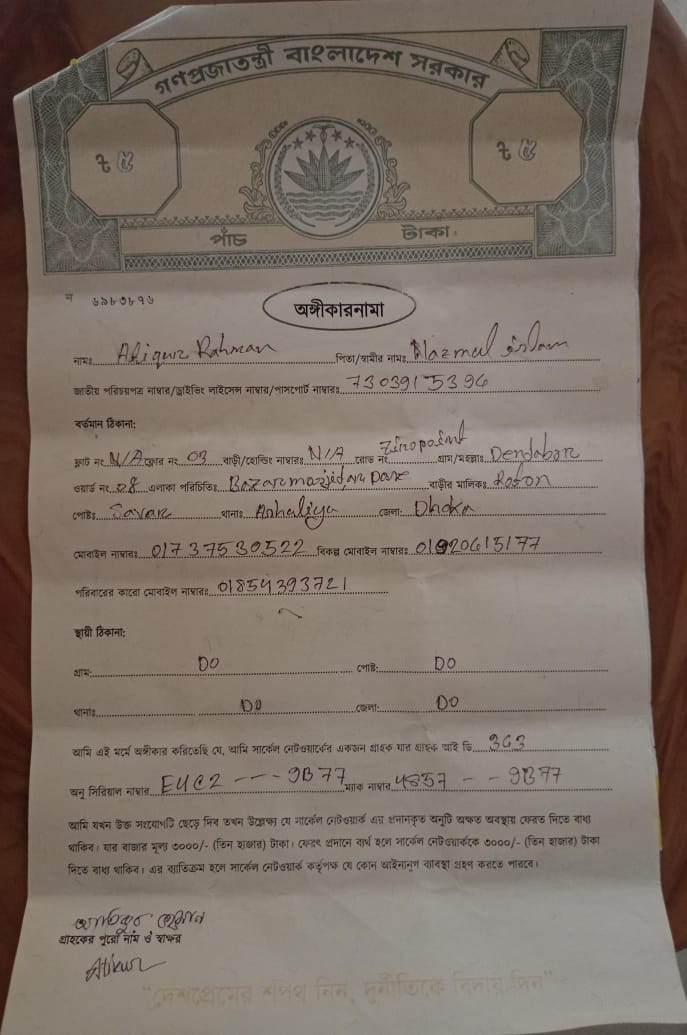 গণপ্রজাতন্ত্রী বাংলাদেশ সরকার
৳ ৫ ৳ ৫
পাঁচ টাকা
ন ৬৯৮৩৮৭৬
অঙ্গীকারনামা
নামঃ Atiqur Rahman পিতা/স্বামীর নামঃ Nazmul islam
জাতীয় পরিচয়পত্র নাম্বার/ড্রাইভিং লাইসেন্স নাম্বার/পাসপোর্ট নাম্বারঃ 7303915394
বর্তমান ঠিকানা:
ফ্লাট নং N/A ফ্লোর নং 03 বাড়ী/হোল্ডিং নাম্বারঃ N/A রোড নং Ziropoint গ্রাম/মহল্লাঃ Dendabar
ওয়ার্ড নং 08 এলাকা পরিচিতিঃ বাড়ীর মালিকঃ Roton
পোষ্টঃ Savar থানাঃ Ashuliya জেলা: Dhaka
মোবাইল নাম্বারঃ 01737530522 বিকল্প মোবাইল নাম্বারঃ 01920615177
পরিবারের কারো মোবাইল নাম্বারঃ 01854393721
স্থায়ী ঠিকানা:
গ্রাম: DO পোষ্ট: DO
থানাঃ DO জেলা: DO
আমি এই মর্মে অঙ্গীকার করিতেছি যে, আমি সার্কেল নেটওয়ার্কের একজন গ্রাহক যার গ্রাহক আই ডি 363
অনু সিরিয়াল নাম্বার E4C2 --- 9B77 ম্যাক নাম্বার 4857 -- 9B77
আমি যখন উক্ত সংযোগটি ছেড়ে দিব তখন উল্লেক্ষ্য যে সার্কেল নেটওয়ার্ক এর প্রদানকৃত অনুটি অক্ষত অবস্থায় ফেরত দিতে বাধ্য
থাকিব। যার বাজার মূল্য ৩০০০/- (তিন হাজার) টাকা। ফেরৎ প্রদানে ব্যর্থ হলে সার্কেল নেটওয়ার্ককে ৩০০০/- (তিন হাজার) টাকা
দিতে বাধ্য থাকিব। এর ব্যতিক্রম হলে সার্কেল নেটওয়ার্ক কর্তৃপক্ষ যে কোন আইনানুগ ব্যাবস্থা গ্রহণ করতে পারবে।
গ্রাহকের পুরো নাম ও স্বাক্ষর
Atikur
"দেশপ্রেমের শপথ নিন, দুর্নীতিকে বিদায় দিন"